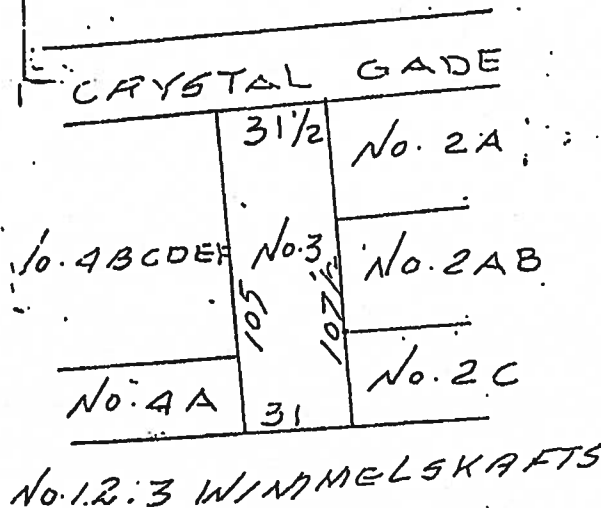 CRYSTAL GADE
31 1/2
No. 2A
No. 4BCDEF
No. 3
No. 2AB
105
107 1/2
No. 4A
No. 2C
31
No. 1.2:3 WIMMELSKAFTS